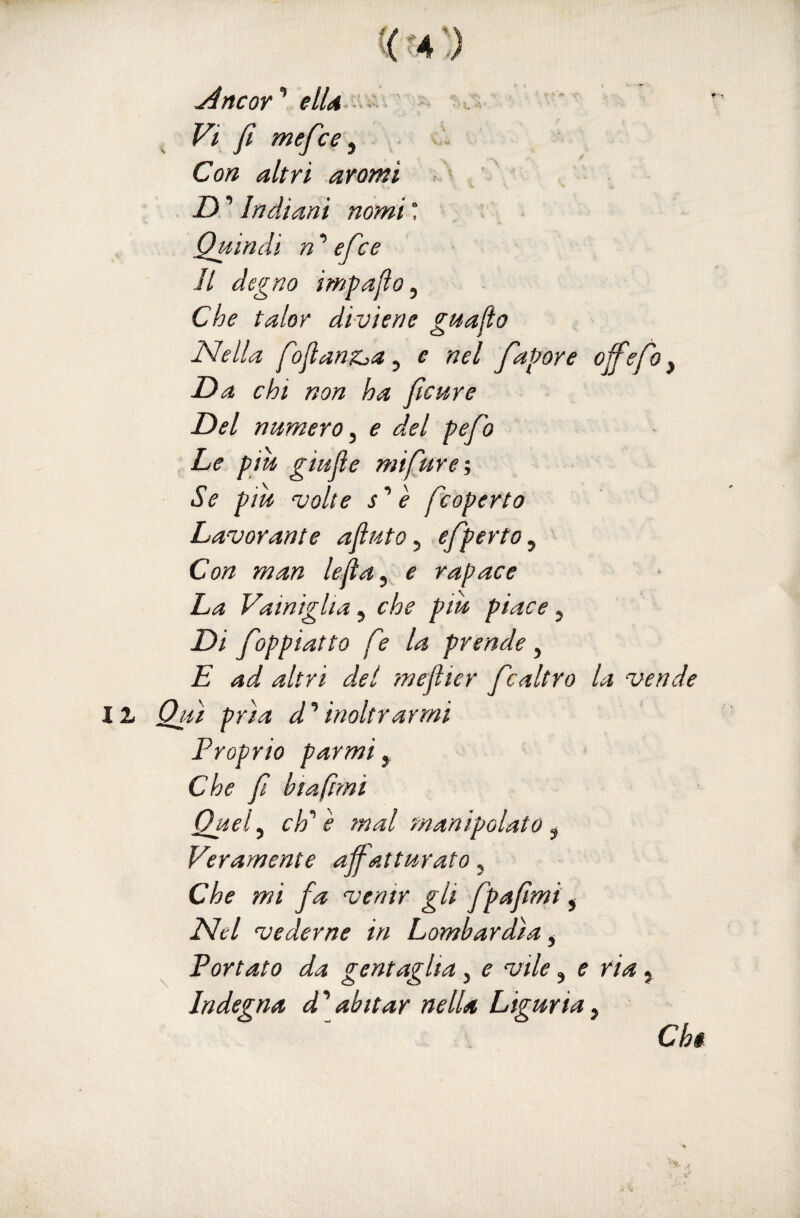 ( 4 )
Ancor' ella
Vi ſi meſce,
Con altri aromi
D' Indiani nomi:
Quindi n' eſce
Il degno impaſto,
Che talor diviene guaſto
Nella ſoſtanza, e nel ſapore offeſo,
Da chi non ha ſicure
Del numero, e del peſo
Le più giuſte miſure;
Se più volte s' è ſcoperto
Lavorante aſtuto, eſperto,
Con man leſta, e rapace
La Vainiglia, che più piace,
Di ſoppiatto ſe la prende,
E ad altri del meſtier ſcaltro la vende
12 Quì prìa d' inoltrarmi
Proprio parmi,
Che ſi biaſimi
Quel, ch' è mal manipolato,
Veramente affatturato,
Che mi fa venir gli ſpaſimi,
Nel vederne in Lombardìa,
Portato da gentaglia, e vile, e ria,
Indegna d' abitar nella Liguria,
Che